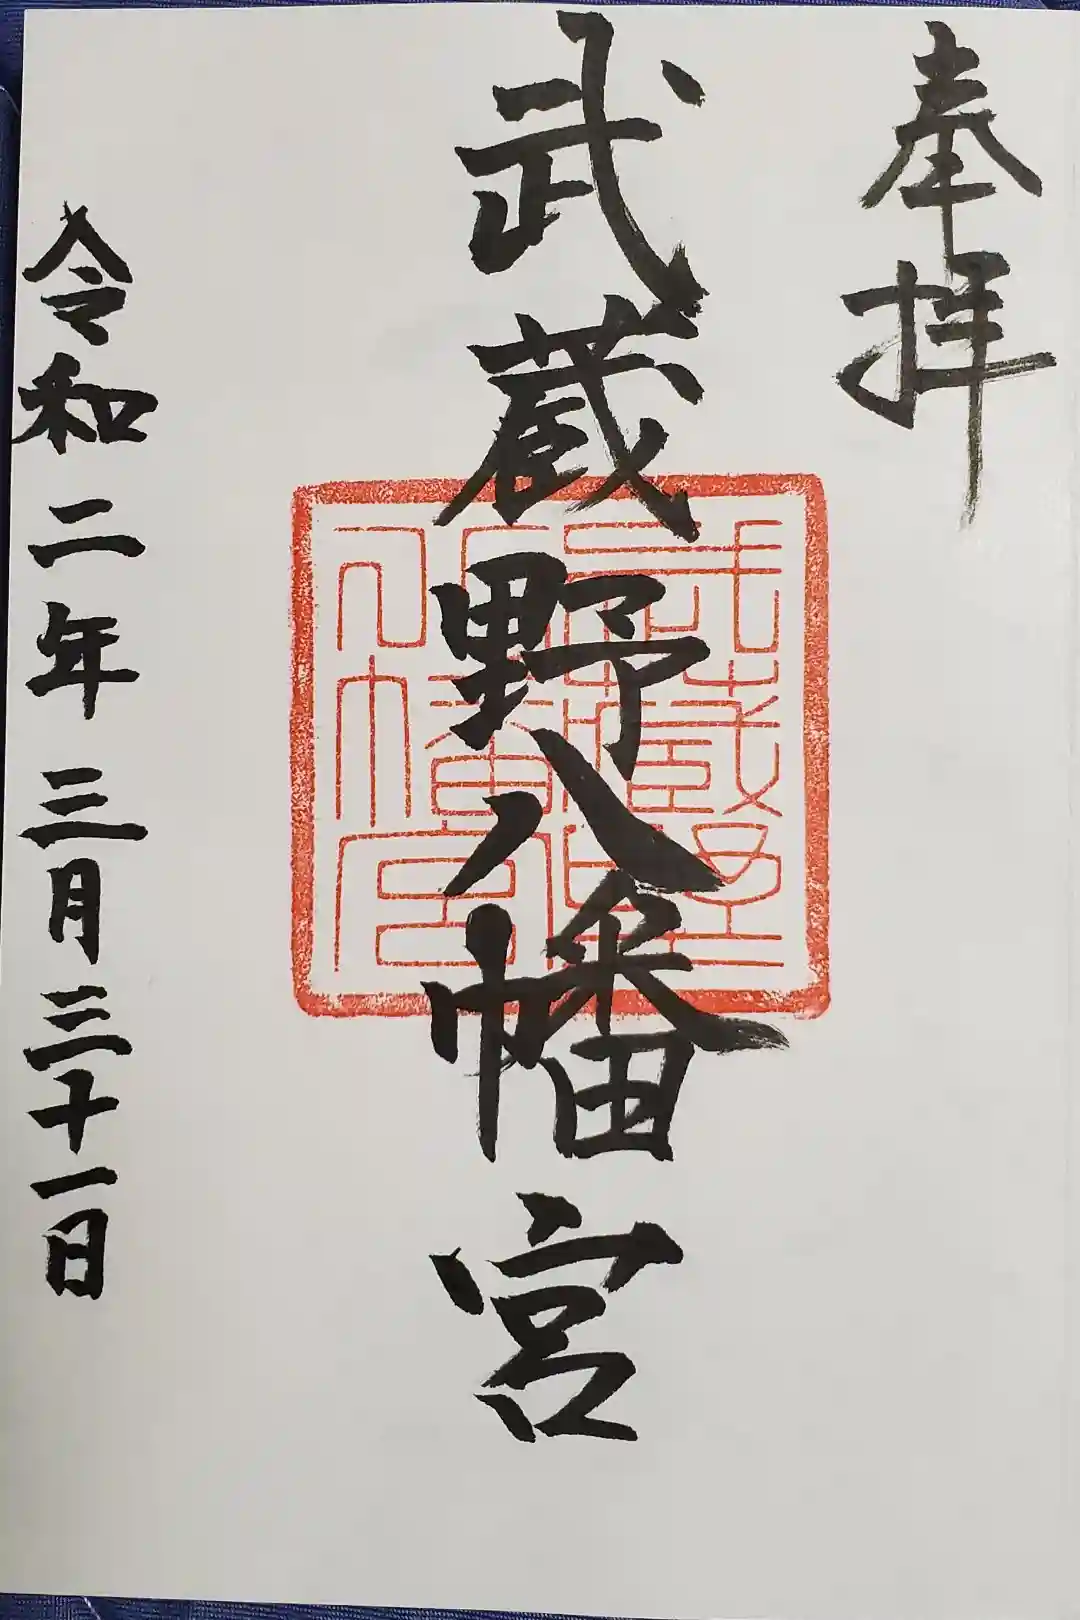 奉拝
武蔵野八幡宮
武蔵野
八幡宮
令和二年三月三十一日